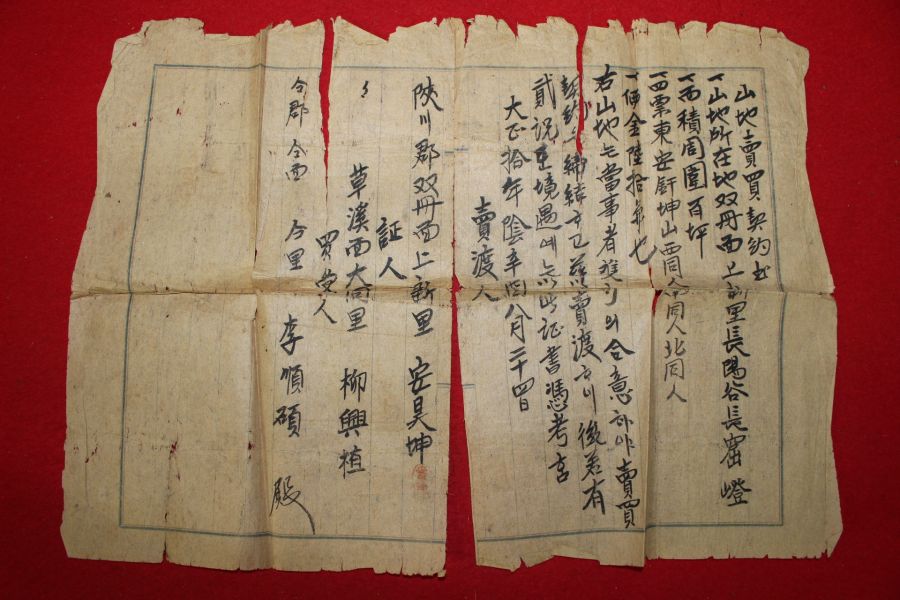 山地賣買契約書
一山地所在地双冊面上新里長陽谷長窟嶝
一面積周圍百坪
一四票東安 坤山西同人南同人北同人
一價金陸拾 也
右山地 當事者 의合意하야賣買
契約 締 하고玆以賣渡하니後若有
貳説 境遇에 以此証書憑考 
大正拾年陰辛酉八月二十四日
賣渡人
陜川郡双冊面上新里 安昊坤
証人
〃 草溪面大同里 柳興植
買受人
仝郡仝面 仝里 李順碩 殿